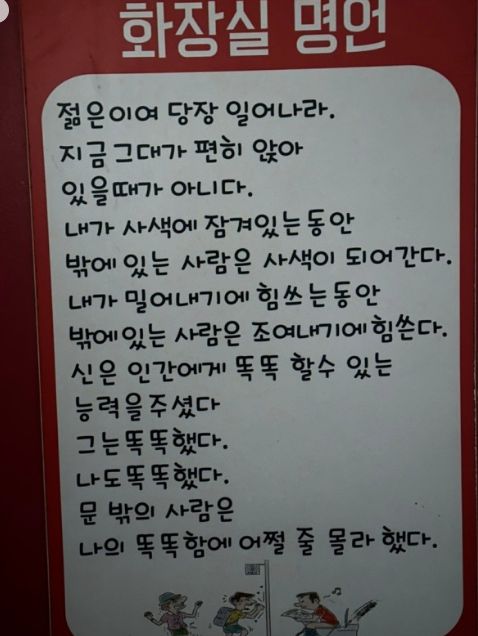 화장실 명언
젊은이여 당장 일어나라.
지금그대가 편히 앉아
있을때가 아니다.
내가 사색에 잠겨있는동안
밖에있는 사람은 사색이 되어간다.
내가 밀어내기에힘쓰는동안
밖에있는 사람은 조여내기에힘쓴다.
신은 인간에게 똑똑 할수 있는
능력을주셨다
그는똑똑했다.
나도똑똑했다.
문 밖의 사람은
나의 똑똑함에어쩔 줄 몰라 했다.